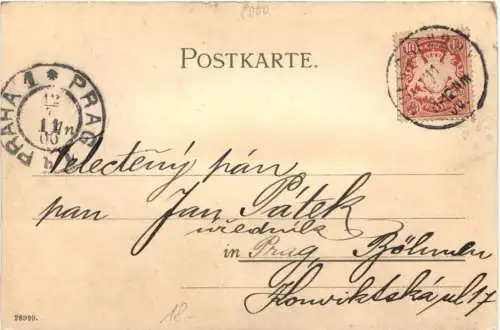 2000
POSTKARTE.
PRAHA 1 * PRAG
12
7
11/n
00
10 10
11
Velectěný pán
pan Jan Pátek
úředník
in Prag, Böhmen
Konviktská ul 17
28989.
18.-